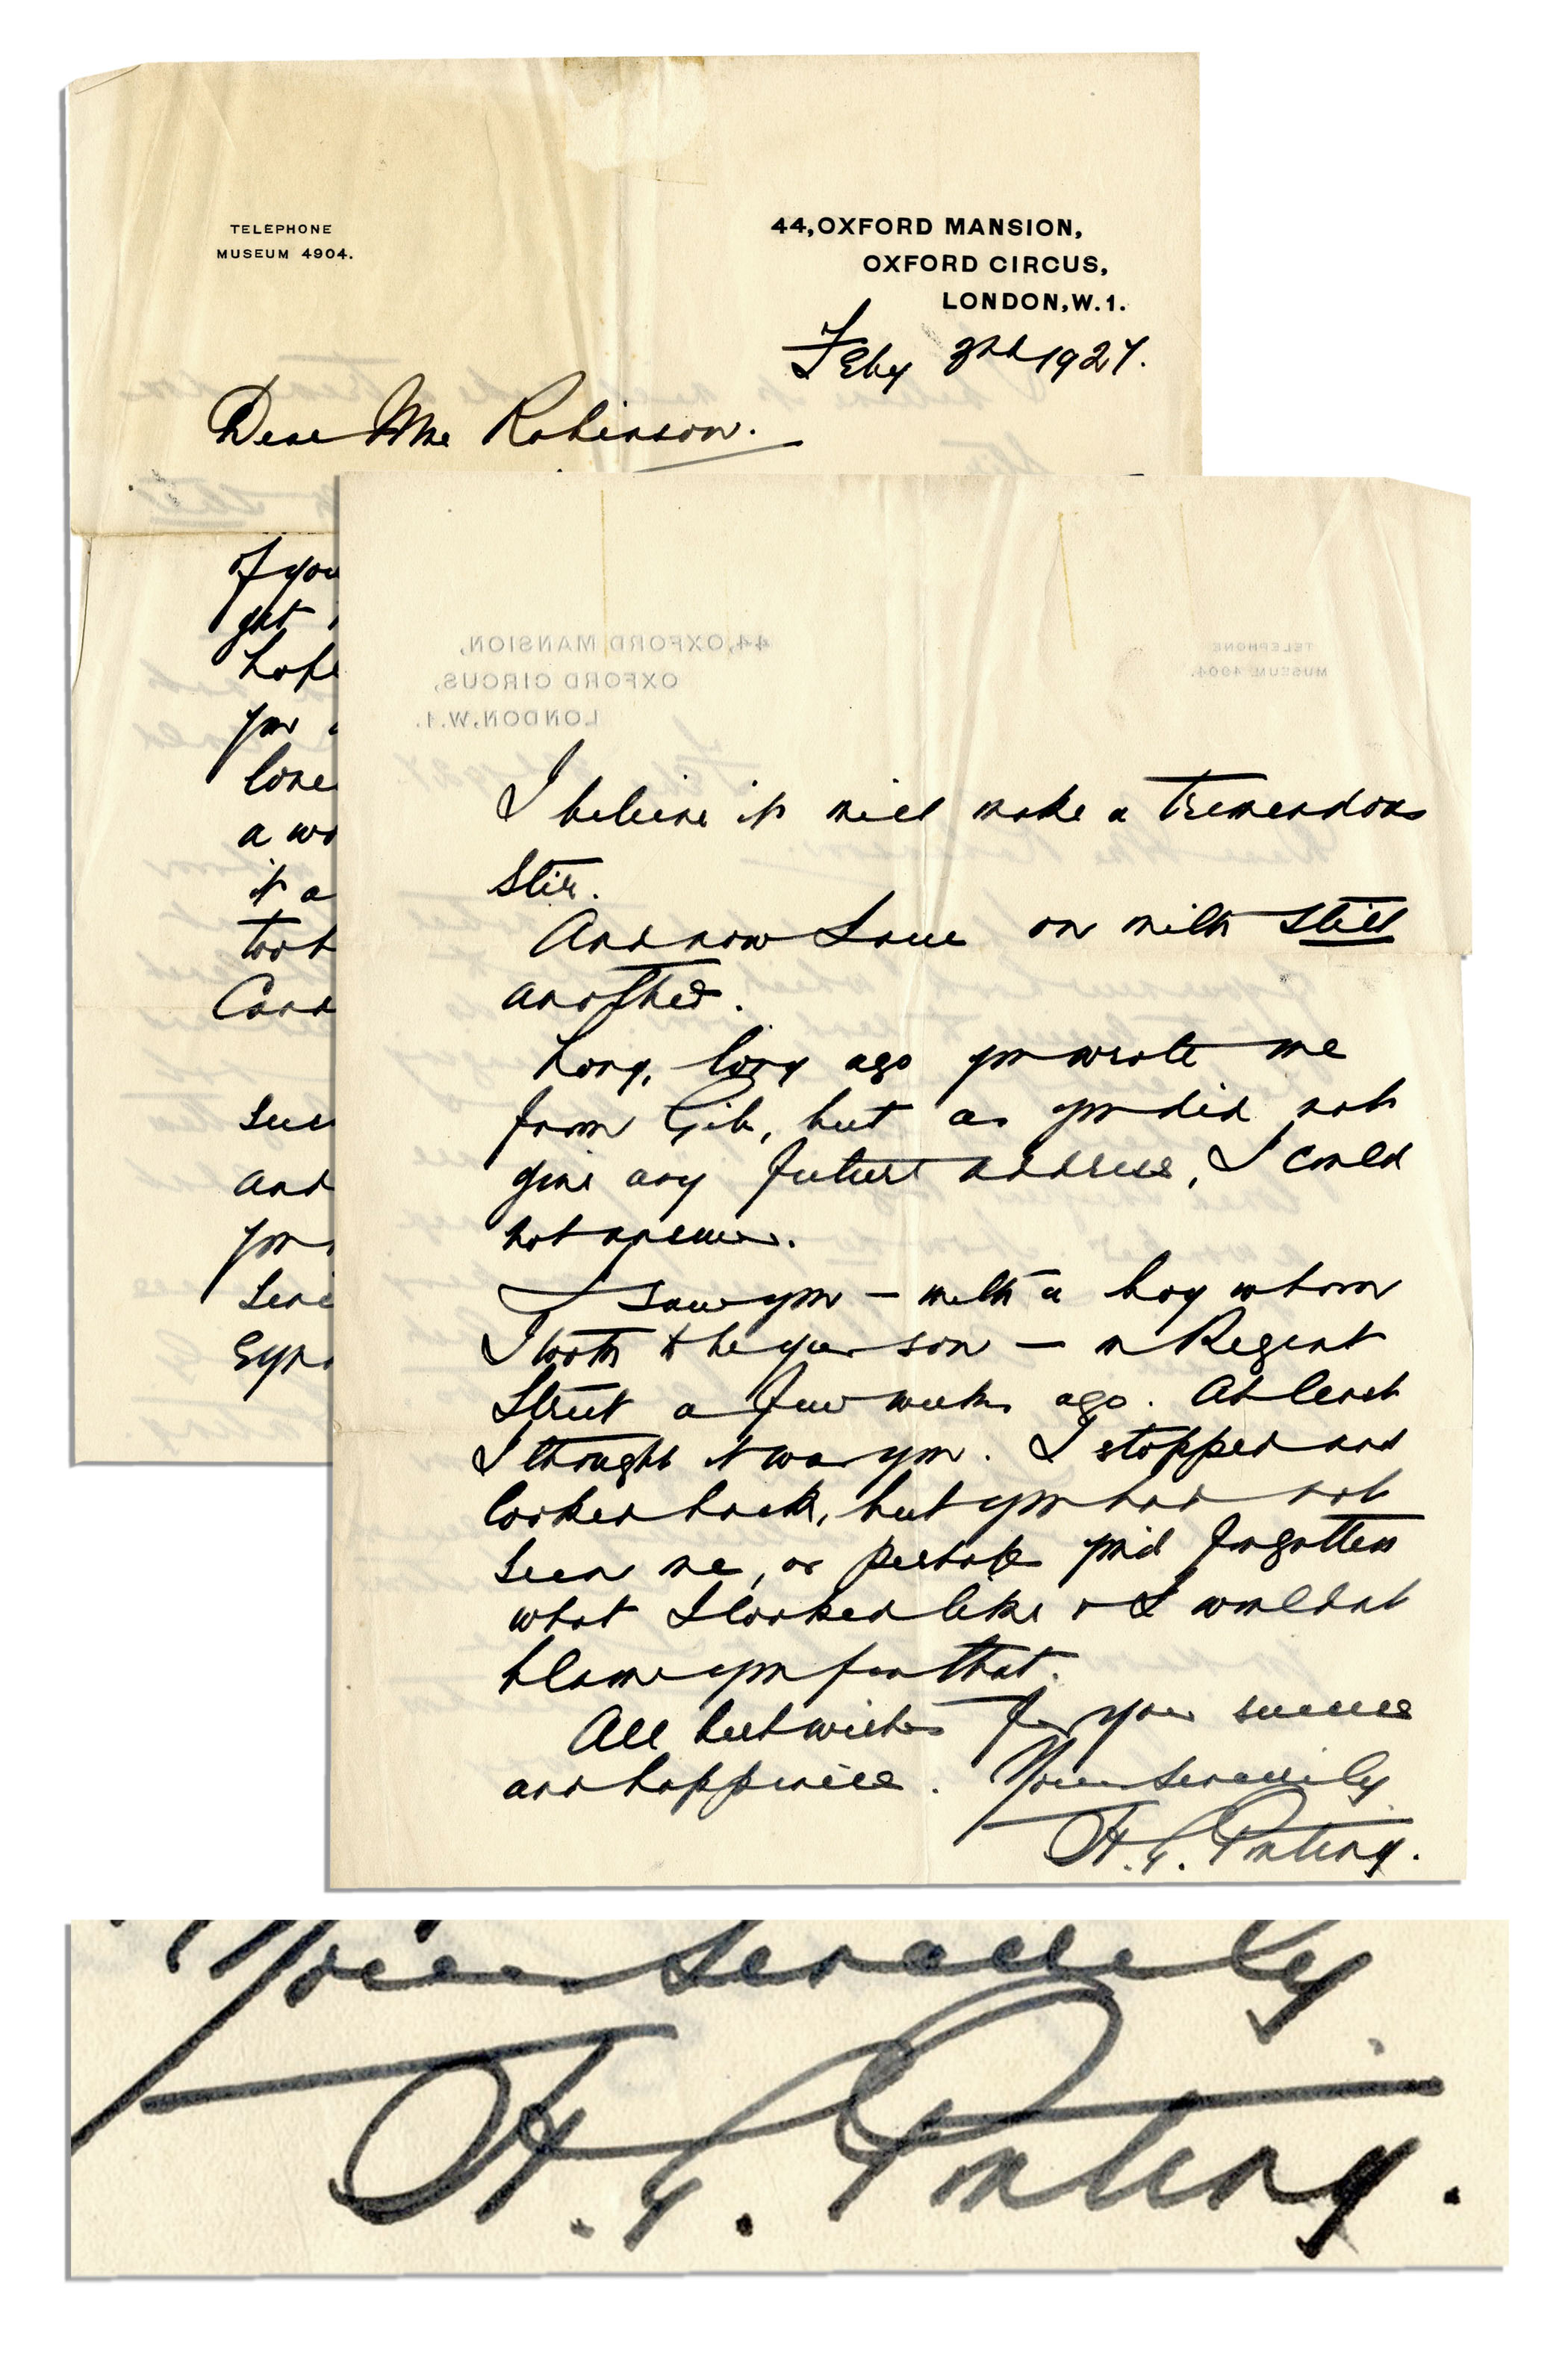 TELEPHONE
MUSEUM 4904.
44, OXFORD MANSION,
OXFORD CIRCUS,
LONDON, W.1.
Feby 3rd 1927.
Dear Mrs Robinson.
If you
get
hope
you
love
a wo
it a
took
Cand
suc
and
you
sinc
Syn
44, OXFORD MANSION,
OXFORD CIRCUS,
LONDON, W.1.
TELEPHONE
MUSEUM 4904.
I believe it will make a tremendous
stir.
And now I am on with still
another.
Long, long ago you wrote me
from Gib, but as you did not
give any future address, I could
not answer.
I saw you — with a boy whom
I took to be your son — in Regent
Street a few weeks ago. At least
I thought it was you. I stopped and
looked back, but you had not
seen me, or perhaps you'd forgotten
what I looked like & I wouldn't
blame you for that.
All best wishes for your success
and happiness. Yours sincerely
H. G. Ponting.
Yours sincerely
H. G. Ponting.